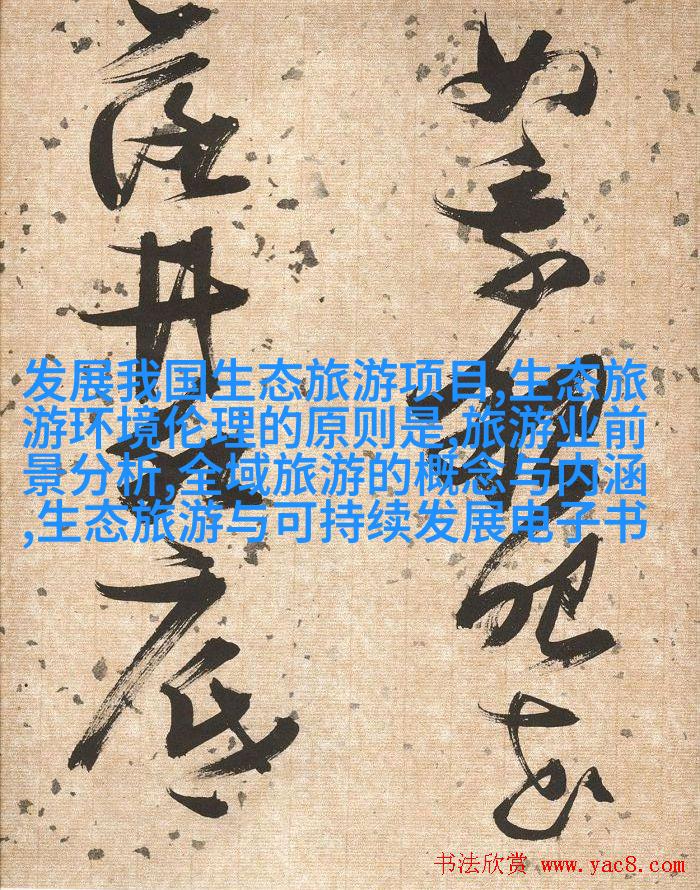 如
井 底
发展我国生态旅游项目,生态旅
游环境伦理的原则是,旅游业前
景分析,全域旅游的概念与内涵
,生态旅游与可持续发展电子书
书法欣赏 www.yac8.com